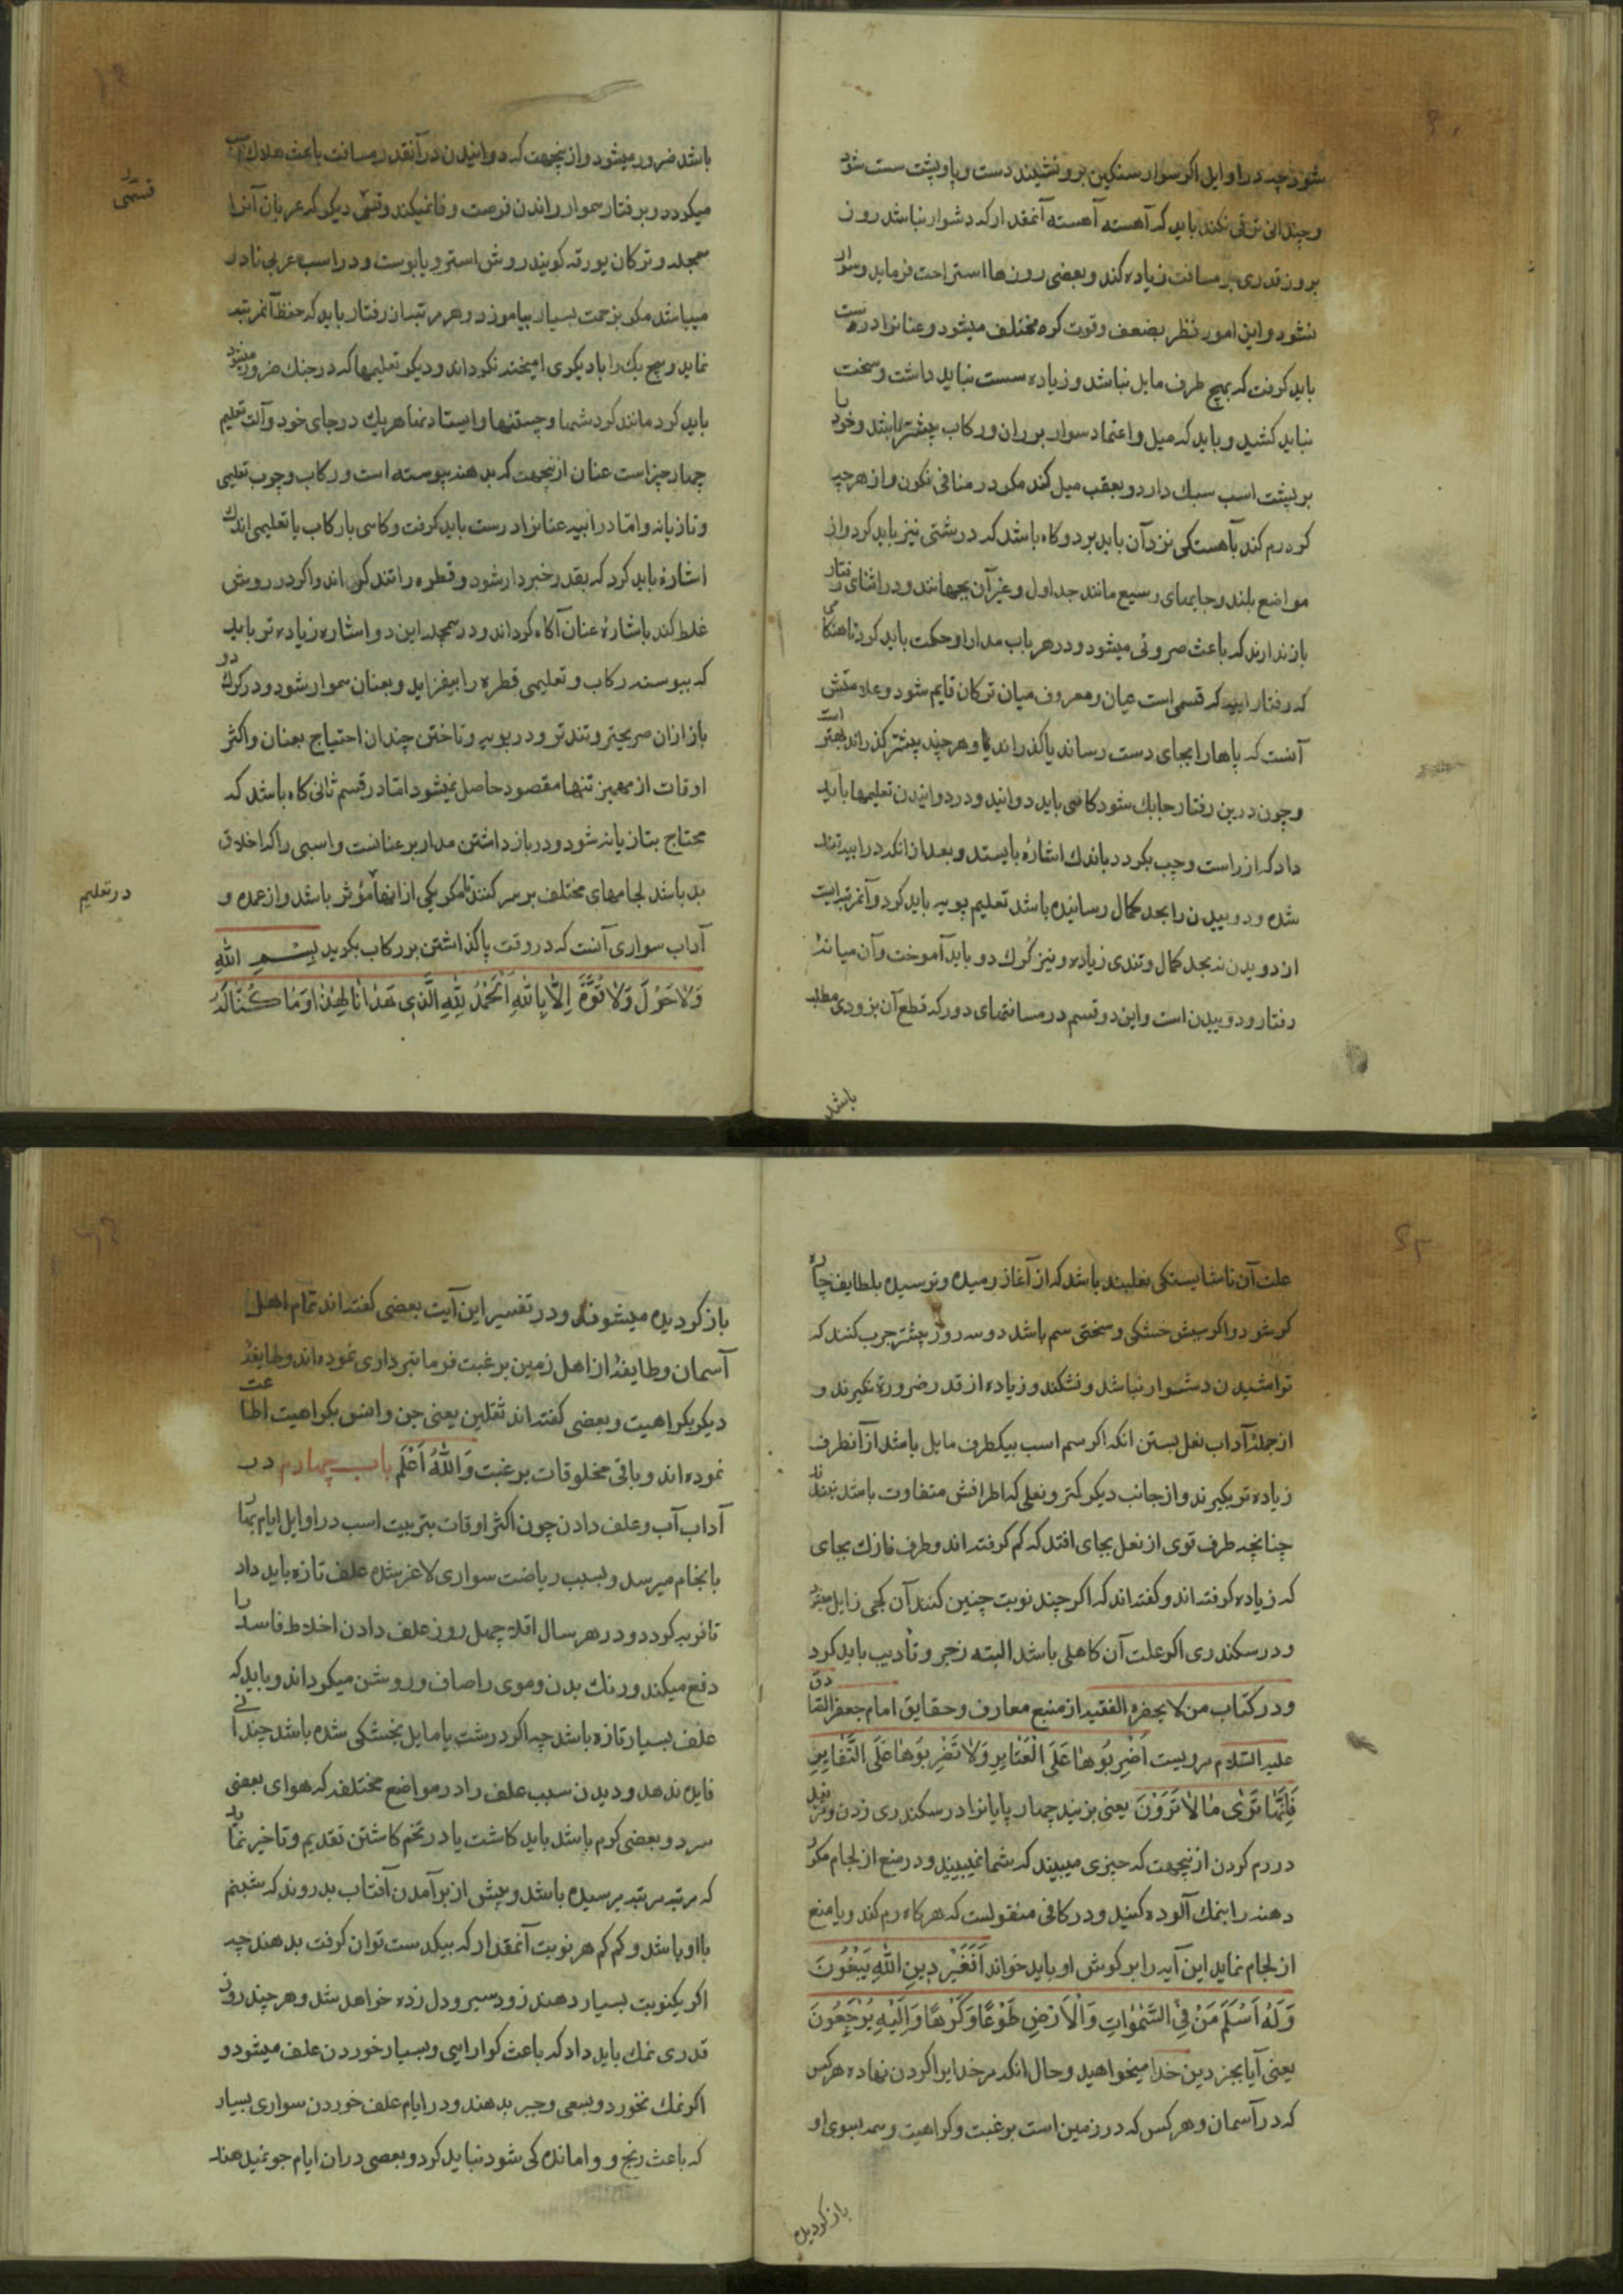 شود چه در اوایل اگر سوار سنگین برو نشیند دست و پا و پشت سست شود
و چندانی ترقی نکند باید که آهسته آهسته آنمقدار که دشوار نباشد روز
بروز قدری بر مسافت زیاده کند و بعضی روزها استراحت فرماید و سوار
نشود و این امور نظر بضعف و قوت کره مختلف میشود و عنانرا درست
باید کرفت که بهیچ طرف مایل نباشد و زیاده سست نباید داشت و سخت
نباید کشید و باید که میل و اعتماد سوار بر ران و رکاب بیشتر باشد و خود را
بر پشت اسب سبک دارد و بعقب میل کند مکر در منافی نکون و از هر چه
کره رم کند بآهستگی نزد آن باید برد و کاه باشد که درشتی نیز باید کرد و از
مواضع بلند و جایهای وسیع مانند جداول و غیر آن بجهانند و در اثنای رفتار
باز ندارند که باعث حرونی میشود و در هر باب مدارا و حکمت باید کرد تا هنگامی
که رفتار ابیه که قسمی است میان و معروف میان ترکان قایم شود و علامتش
آنست که پاها را بجای دست رساند یا کذراند و هر چند پیشتر کذراند بهتر است
و چون درین رفتار چابک شود کاهی باید دوانید و در دوانیدن تعلیمها باید
داد که از راست و چپ بکردد باندک اشاره بایستد و بعد از انکه در ابیه تند
شده و دویدن را بحد کمال رسانیده باشد تعلیم پویه باید کرد و آنمرتبه ایست
از دویدن نه بحد کمال و تندی زیاده و نیز کرک دو باید آموخت و آن میانه
رفتار و دویدن است و این دو قسم در مسافتهای دور که قطع آن بزودی مطلب
باشد
باشد ضرور میشود و ازینجهت که دوانیدن در آنقدر مسافت باعث هلاک اسب
میکردد و برفتار هموار راندن فرصت وفا نمیکند و قسمی دیکر که عربان آنرا
همجله و ترکان یورقه کویند روش استر و یابوست و در اسب عربی نادر
میباشد مکر بزحمت بسیار بیاموزد و هر مرتبه از رفتار باید که حفظ آنمرتبه
نماید و هیچ یک را با دیکری امیخته نکرداند و دیکر تعلیمها که در جنک ضرور میشود
باید کرد مانند کردشها و جستنها و ایستادنها هر یک در جای خود و آلت تعلیم
چهار چیز است عنان ازینجهت که بدهنه پیوسته است و رکاب و چوب تعلیمی
و تازیانه و اما در ابیه عنانرا درست باید کرفت و کاهی با رکاب یا تعلیمی اندک
اشاره باید کرد که بقدر خبردار شود و قطره را تند کرداند و اکر در روش
غلط کند باشارهٔ عنان آکاه کرداند و در همجله این دو اشاره زیاده تر باید
که پیوسته رکاب و تعلیمی قطره را بیفزاید و بعنان هموار شود و در کرک دو
باز ازان صریحتر و تندتر و در پویه و تاختن چندان احتیاج بعنان و اکثر
اوقات از مهمیز تنها مقصود حاصل نمیشود اما در قسم ثانی کاه باشد که
محتاج بتازیانه شود و در باز داشتن مدار بر عنانست و اسبی را که اخلاق
بد باشد لجامهای مختلف بر سر کنند تا مکر یکی از انها مؤثر باشد و از عمده
آداب سواری آنست که در وقت پا کذاشتن بر رکاب بکوید بِسْمِ اللهِ
وَلاحَوْلَ وَلاقُوَّةَ اِلّا بِاللهِ اَلْحَمْدُ لِلّهِ الَّذِی هَدٰانٰا لِهٰذٰا وَمٰا کُنّٰا لَهُ
قسمی
در تعلیم
علت آن ناشایستگی نعلبند باشد که از آغاز رمیده و ترسیده بلطایف چاره
کر شود و اکر سببش خشکی و سختی سم باشد دو سه روز پیشتر چرب کنند که
تراشیدن دشوار نباشد و نشکند و زیاده از قدر ضرورة نکیرند و
از جملهٔ آداب نعل بستن انکه اکر سم اسب بیکطرف مایل باشد از آنطرف
زیاده تر بکیرند و از جانب دیکر کمتر و نعلی که اطرافش متفاوت باشد ببندند
چنانچه طرف قوی از نعل بجای افتد که کم کرفته اند و طرف نازک بجای
که زیاده کرفته اند و کفته اند که اکر چند نوبت چنین کنند آن کجی زایل میشود
و در سکندری اکر علت آن کاهلی باشد البته زجر و تأدیب باید کرد
و در کتاب من لا یحضره الفقیه از منبع معارف و حقایق امام جعفر الصادق
علیه السّلام مرویست اَضْرِبُوهٰا عَلَی الْعِثٰارِ وَلاٰ تَضْرِبُوهٰا عَلَی النِّفٰارِ
فَاِنَّهٰا تَرٰی مٰا لاٰ تَرَوْنَ یعنی بزنید چهار پایانرا در سکندری زدن و مزنید
در رم کردن ازینجهت که چیزی میبیند که شما نمیبیند و در منع از لجام مکرر
دهنه را بنمک آلوده کنید و در کافی منقولست که هر کاه رم کند و یا منع
از لجام نماید این آیه را بر کوش او باید خواند اَفَغَیْرَ دِینِ اللهِ یَبْغُونَ
وَلَهُ اَسْلَمَ مَنْ فِی السَّمٰوٰاتِ وَالْاَرْضِ طَوْعًا وَکَرْهًا وَاِلَیْهِ یُرْجَعُونَ
یعنی آیا بجز دین خدا میخواهید و حال انکه مر خدایرا کردن نهاده هر کس
که در آسمان و هر کس که در زمین است برغبت و کراهیت و همه بسوی او
باز کردیده
باز کردیده میشوند و در تفسیر این آیت بعضی کفته اند تمام اهل
آسمان و طایفهٔ از اهل زمین برغبت فرمانبرداری نموده اند و طایفهٔ
دیکر بکراهیت و بعضی کفته اند ثقلین یعنی جن و انس بکراهیت اطاعت
نموده اند و باقی مخلوقات برغبت وَاللهُ اَعْلَم باب چهارم در
آداب آب و علف دادن چون اکثر اوقات تربیت اسب در اوایل ایام بهار
بانجام میرسد و بسبب ریاضت سواری لاغر شده علف تازه باید داد
تا فربه کردد و در هر سال اقلا چهل روز علف دادن اخلاط فاسد را
دفع میکند و رنک بدن و موی را صاف و روشن میکرداند و باید که
علف بسیار تازه باشد چه اکر درشت یا مایل بخشکی شده باشد چندانی
فایده ندهد و دیدن سبب علف را در مواضع مختلفه که هوای بعضی
سرد و بعضی کرم باشد باید کاشت یا در تخم کاشتن تقدیم و تاخیر نماید
که مرتبه مرتبه برسیده باشد و پیش از بر آمدن آفتاب بدروند که شبنم
با او باشد و کم کم هر نوبت آنمقدار که بیکدست توان کرفت بدهند چه
اکر یکنوبت بسیار دهند زود سیر و دل زده خواهد شد و هر چند روزی
قدری نمک باید داد که باعث کوارایی و بسیار خوردن علف میشود و
اکر نمک نخورد و بسعی و جبر بدهند و در ایام علف خوردن سواری بسیار
که باعث رنج و واماندهکی شود نباید کرد و بعضی دران ایام جو نمیدهند